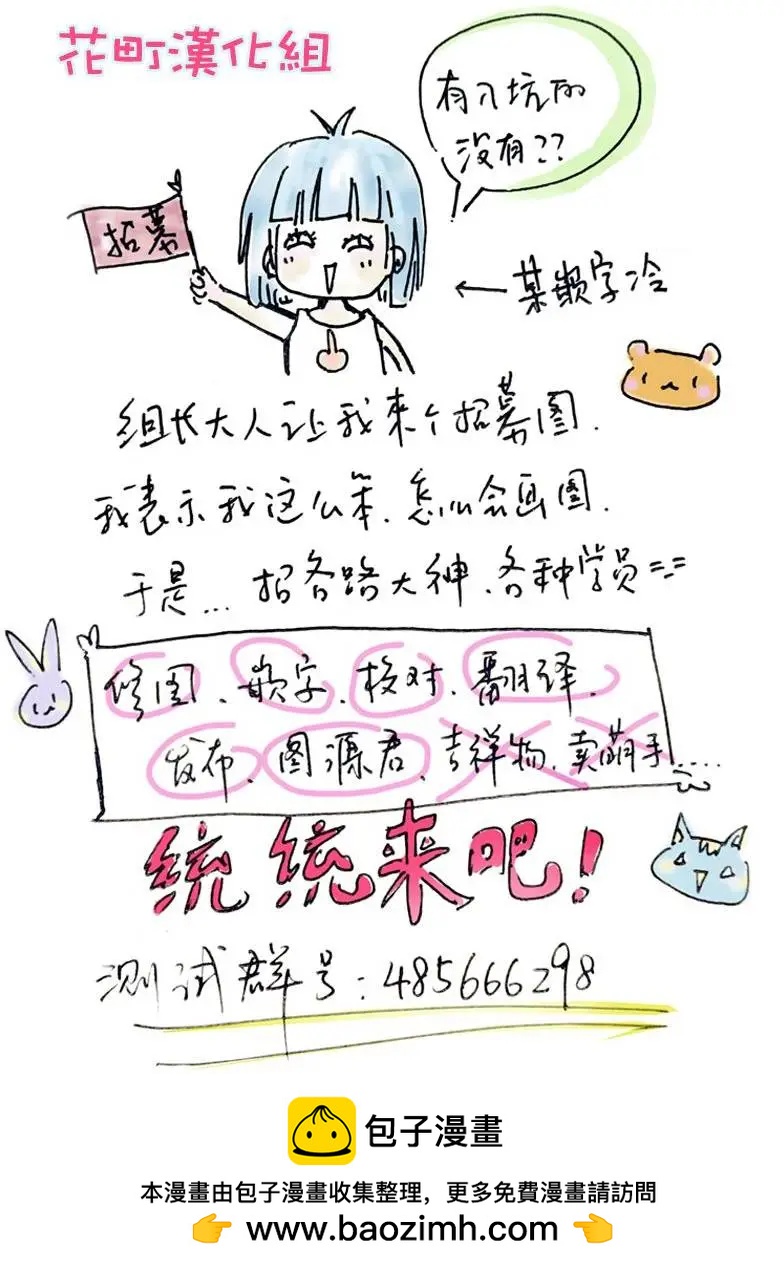 花町漢化組
有入坑的
没有??
招募
←某嵌字冷
组长大人让我来个招募图.
我表示我这么笨.怎么会画图.
于是...招各路大神、各种学员=.=
修图、嵌字、校对、翻译、
发布、图源君、吉祥物、卖萌手....
统统来吧!
测试群号:485666298
包子漫畫
本漫畫由包子漫畫收集整理，更多免費漫畫請訪問
👉 www.baozimh.com 👈